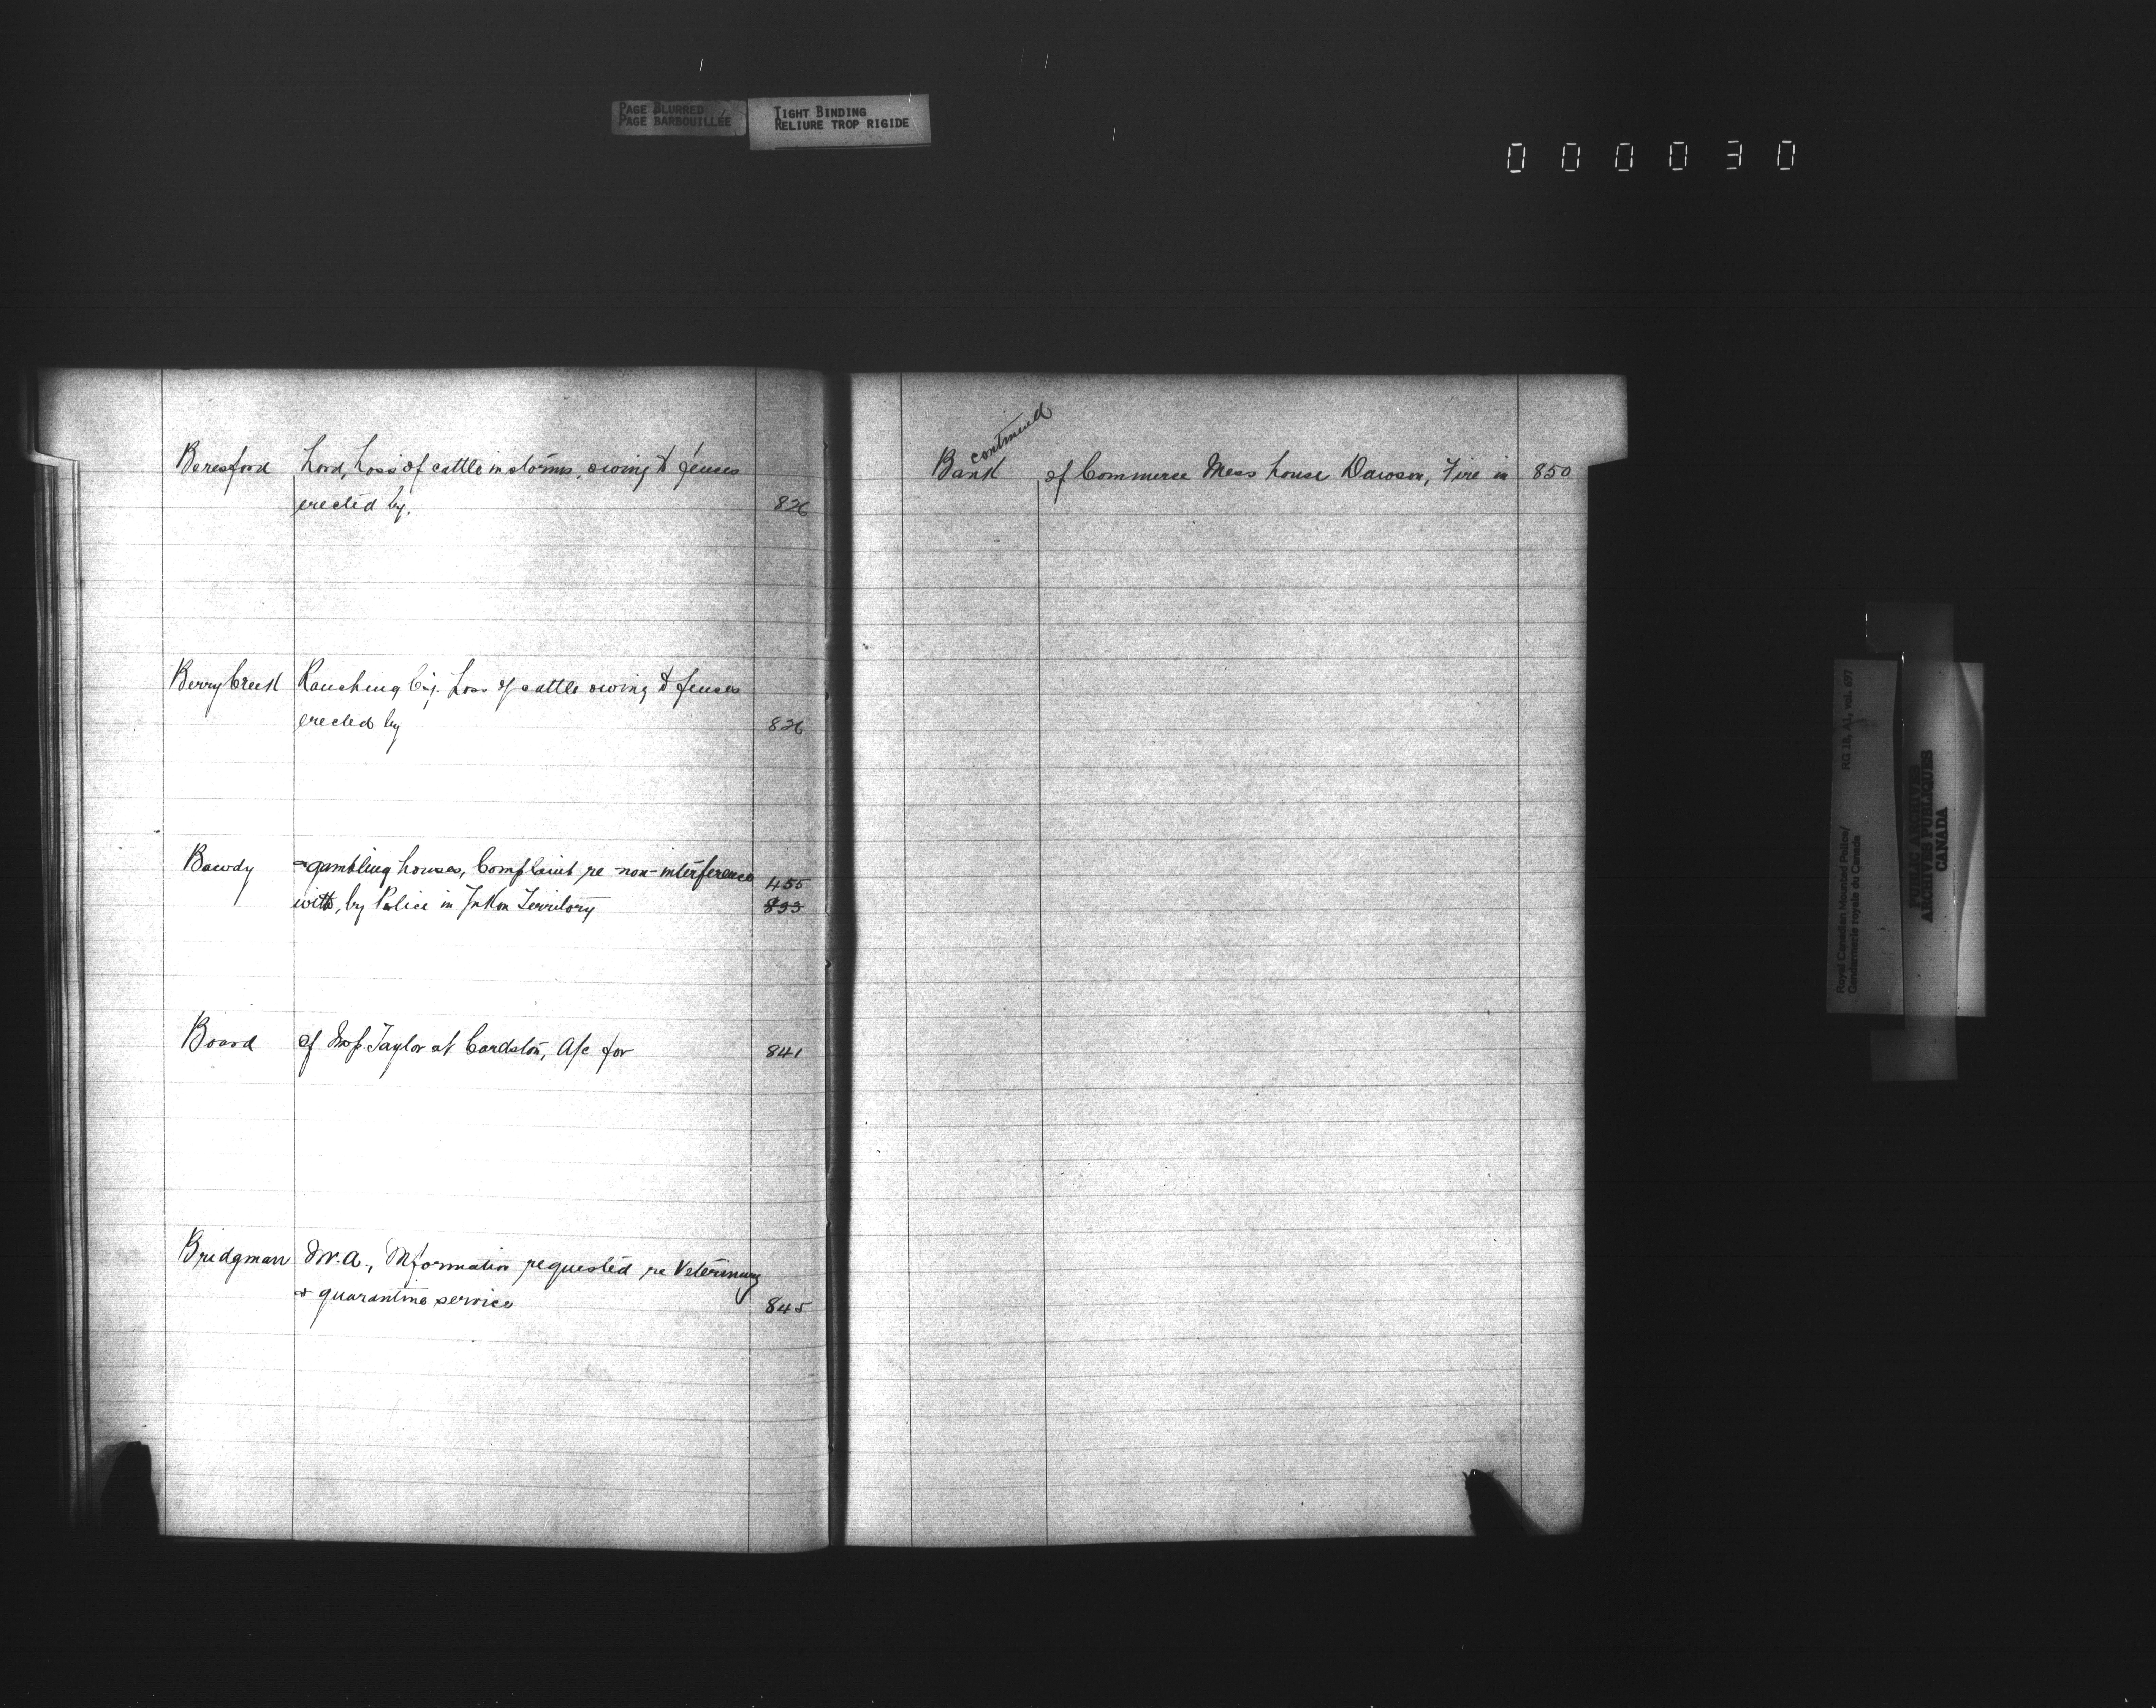 PAGE BLURRED
PAGE BARBOUILLÉE
TIGHT BINDING
RELIURE TROP RIGIDE
000030
Beresford Lord, Loss of cattle in storms, owing to fences
erected by. 826
Berry Creek Ranching Coy. Loss of cattle owing to fences
erected by 826
Bawdy & gambling houses, Complaint re non-interference 455
with, by Police in Yukon Territory 833
Board of Insp. Taylor at Cardston, A/c for 841
Bridgman W.A., Information requested re Veterinary
& quarantine service 845
continued
Bank of Commerce Mess house Dawson, Fire in 850
Royal Canadian Mounted Police/ RG 18, A1, vol. 697
Gendarmerie royale du Canada
PUBLIC ARCHIVES
ARCHIVES PUBLIQUES
CANADA